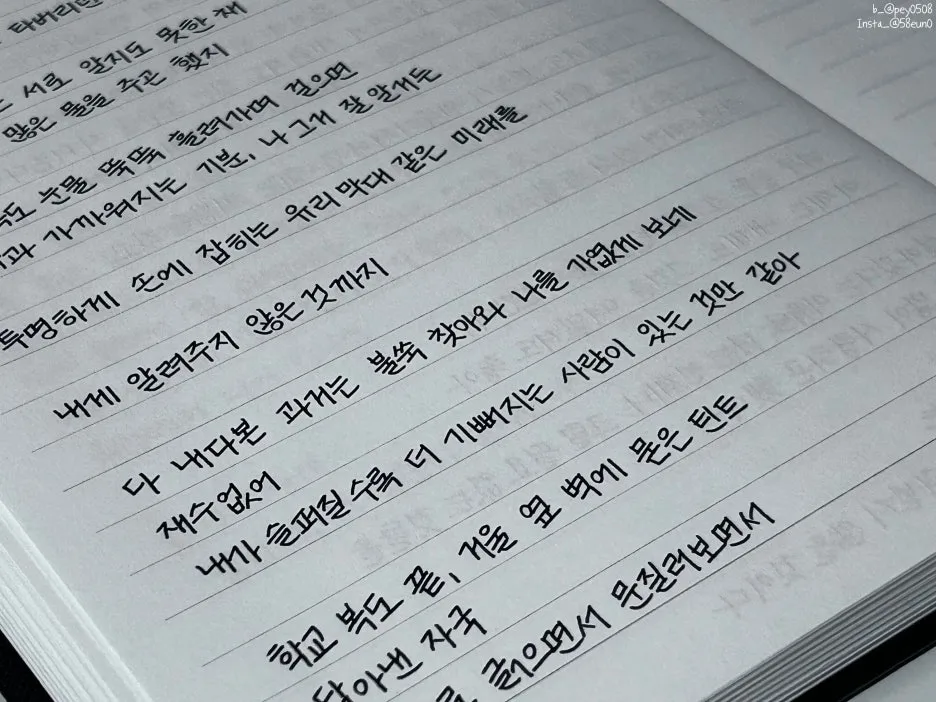 b_@pey0508
Insta_@58eun0
타버리면
서로 알지도 못한 채
많은 물을 주곤 했지
복도 눈물 뚝뚝 흘려가며 걸으면
과 가까워지는 기분, 나 그거 잘 알거든
투명하게 손에 잡히는 유리막대 같은 미래를
내게 알려주지 않은 것까지
다 내다본 과거는 불쑥 찾아와 나를 가엾게 보네
재수없어
내가 슬퍼질수록 더 기뻐지는 사람이 있는 것만 같아
학교 복도 끝, 거울 옆 벽에 묻은 틴트
닦아낸 자국
긁으면서 문질러보면서